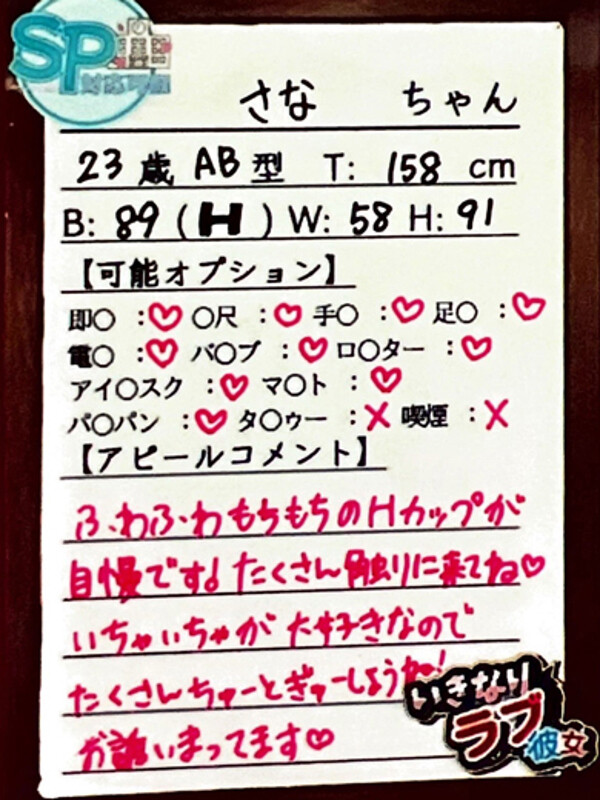 SP
対応可能
さな ちゃん
23 歳 AB 型 T: 158 cm
B: 89 (H) W: 58 H: 91
【可能オプション】
即〇 :♡ 〇尺 :♡ 手〇 :♡ 足〇 :♡
電〇 :♡ バ〇ブ :♡ ロ〇ター :♡
アイ〇スク :♡ マ〇ト :♡
パ〇パン :♡ タ〇ゥー :× 喫煙 :×
【アピールコメント】
ふわふわもちもちのHカップが
自慢です!たくさん触りに来てね♡
いちゃいちゃが大好きなので
たくさんちゅーとぎゅーしようね!
お誘いまってます♡
いきなり
ラブ彼女